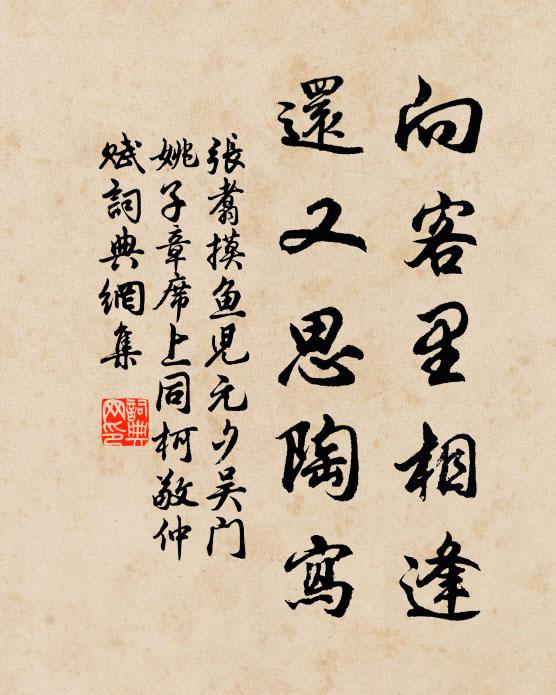 向客里相逢
還又思陶寫
張翥摸鱼児元夕吴门
姚子章席上同柯敬仲
赋詞典網集
詞典网印